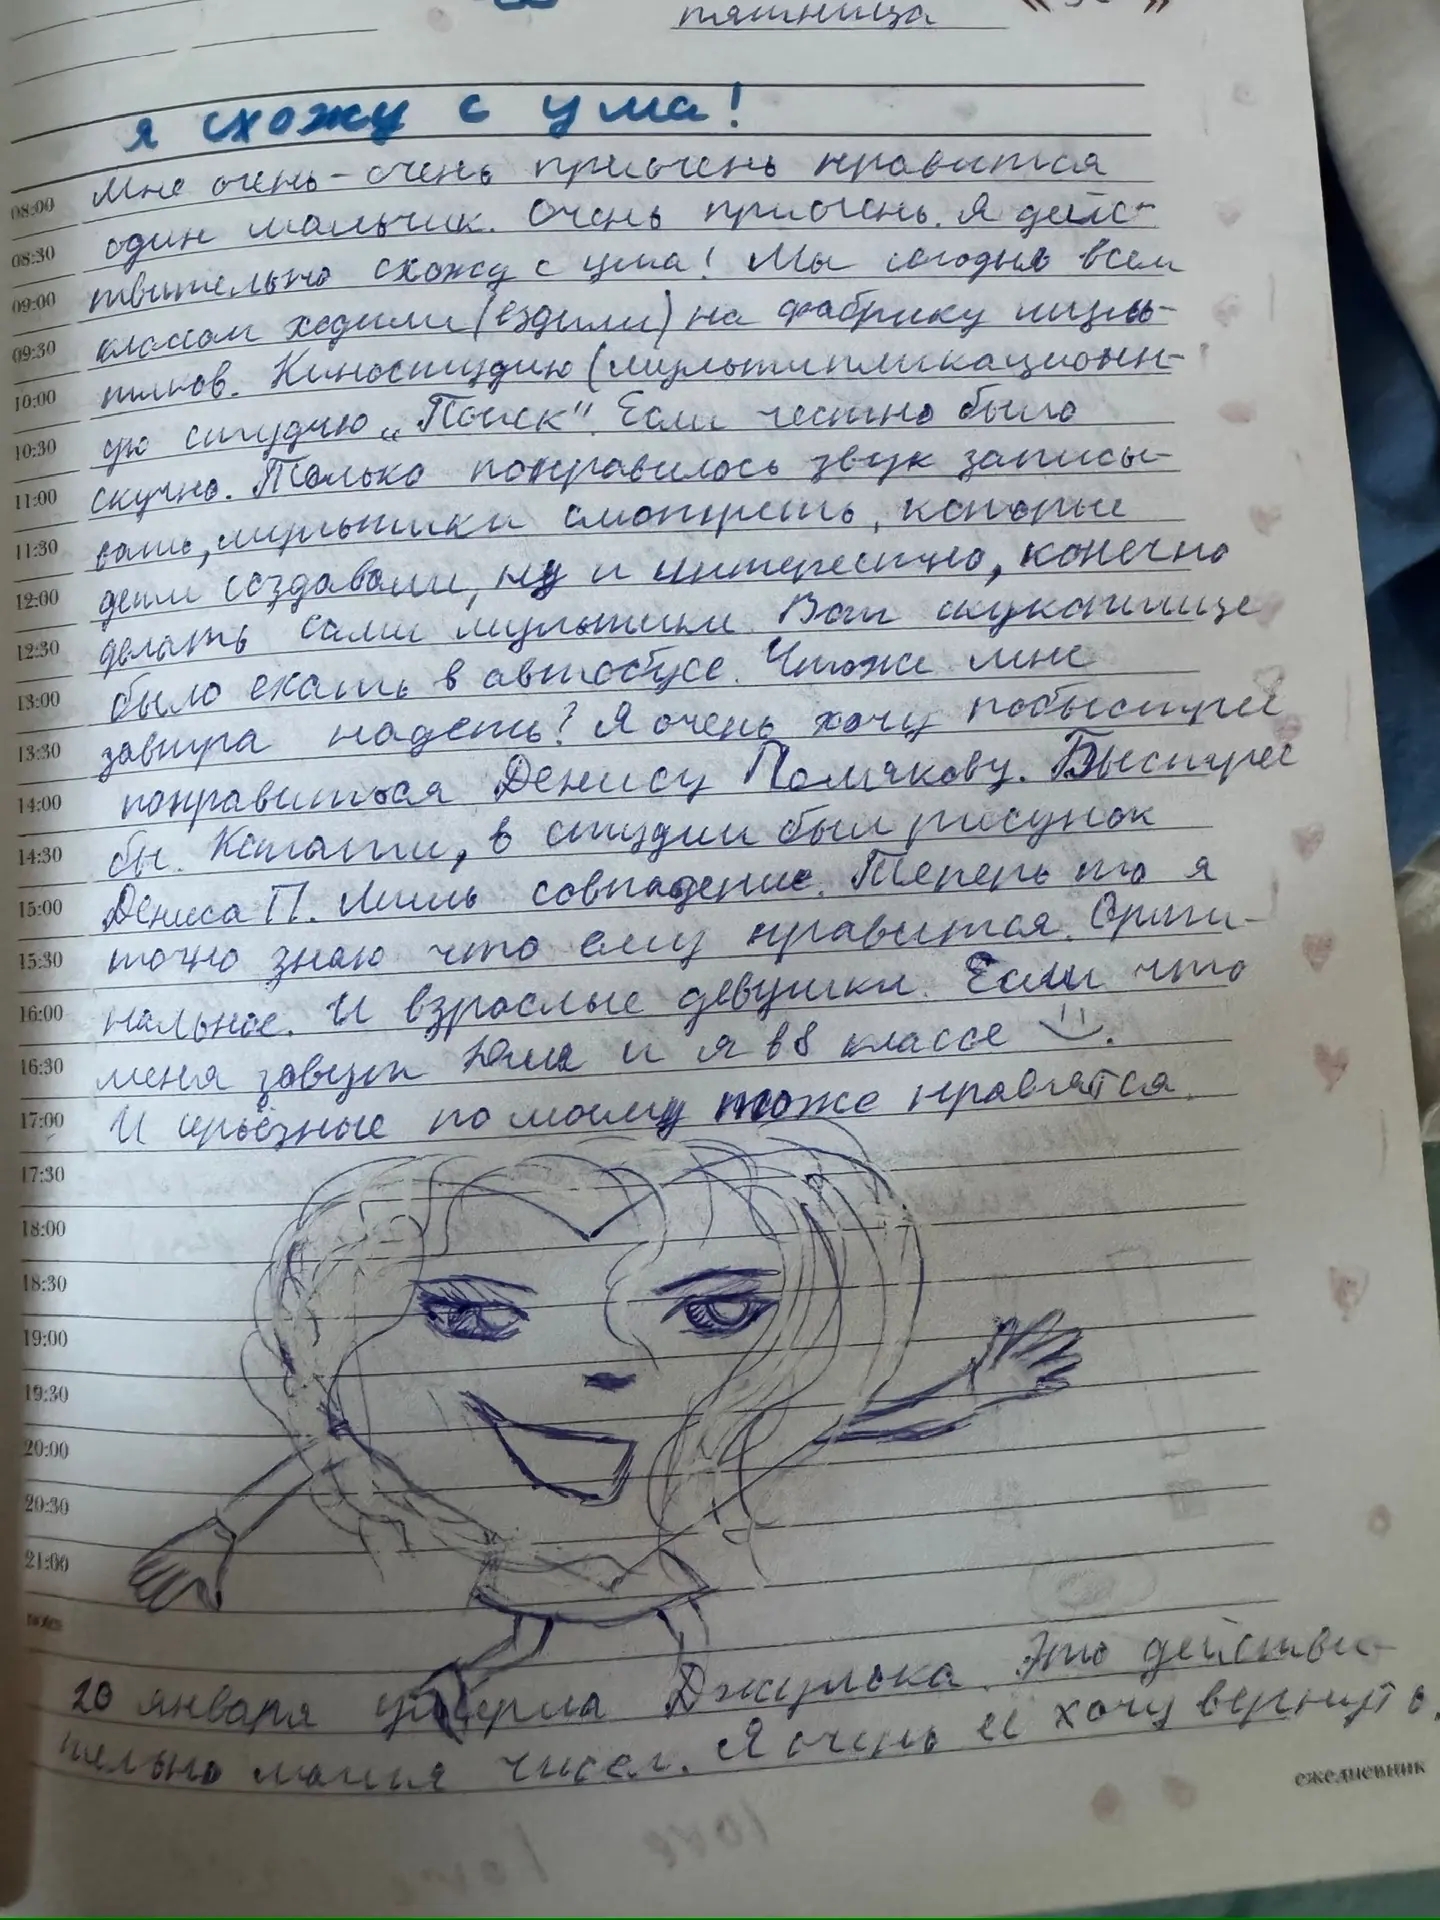 пятница
я схожу с ума!
Мне очень-очень приочень нравится
08:00
один мальчик. Очень приочень. Я дейс-
08:30
твительно схожу с ума! Мы сегодня всем
09:00
классом ходили (ездили) на фабрику муль-
09:30
тиков. Киностудию (мультипликационн-
10:00
ую студию „Поиск". Если честно было
10:30
скучно. Только понравилось звук записы-
11:00
вать, мультики смотреть, которые
11:30
дети создавали, ну и интересно, конечно
12:00
делать сами мультики. Вот скукотище
12:30
было ехать в автобусе. Чтоже мне
13:00
завтра надеть? Я очень хочу побыстрее
13:30
понравиться Денису Полякову. Быстрее
14:00
бы. Кстати, в студии был рисунок
14:30
Дениса П. Лишь совпадение. Теперь то я
15:00
точно знаю что ему нравится. Ориги-
15:30
нальное. И взрослые девушки. Если что
16:00
меня зовут Юля и я в 8 классе
16:30
И серьёзные по моему тоже нравятся.
17:00
17:30
18:00
18:30
19:00
19:30
20:00
20:30
21:00
20 января умерла Джулька. Это действи-
тельно магия чисел. Я очень её хочу вернуть.
ежедневник
love